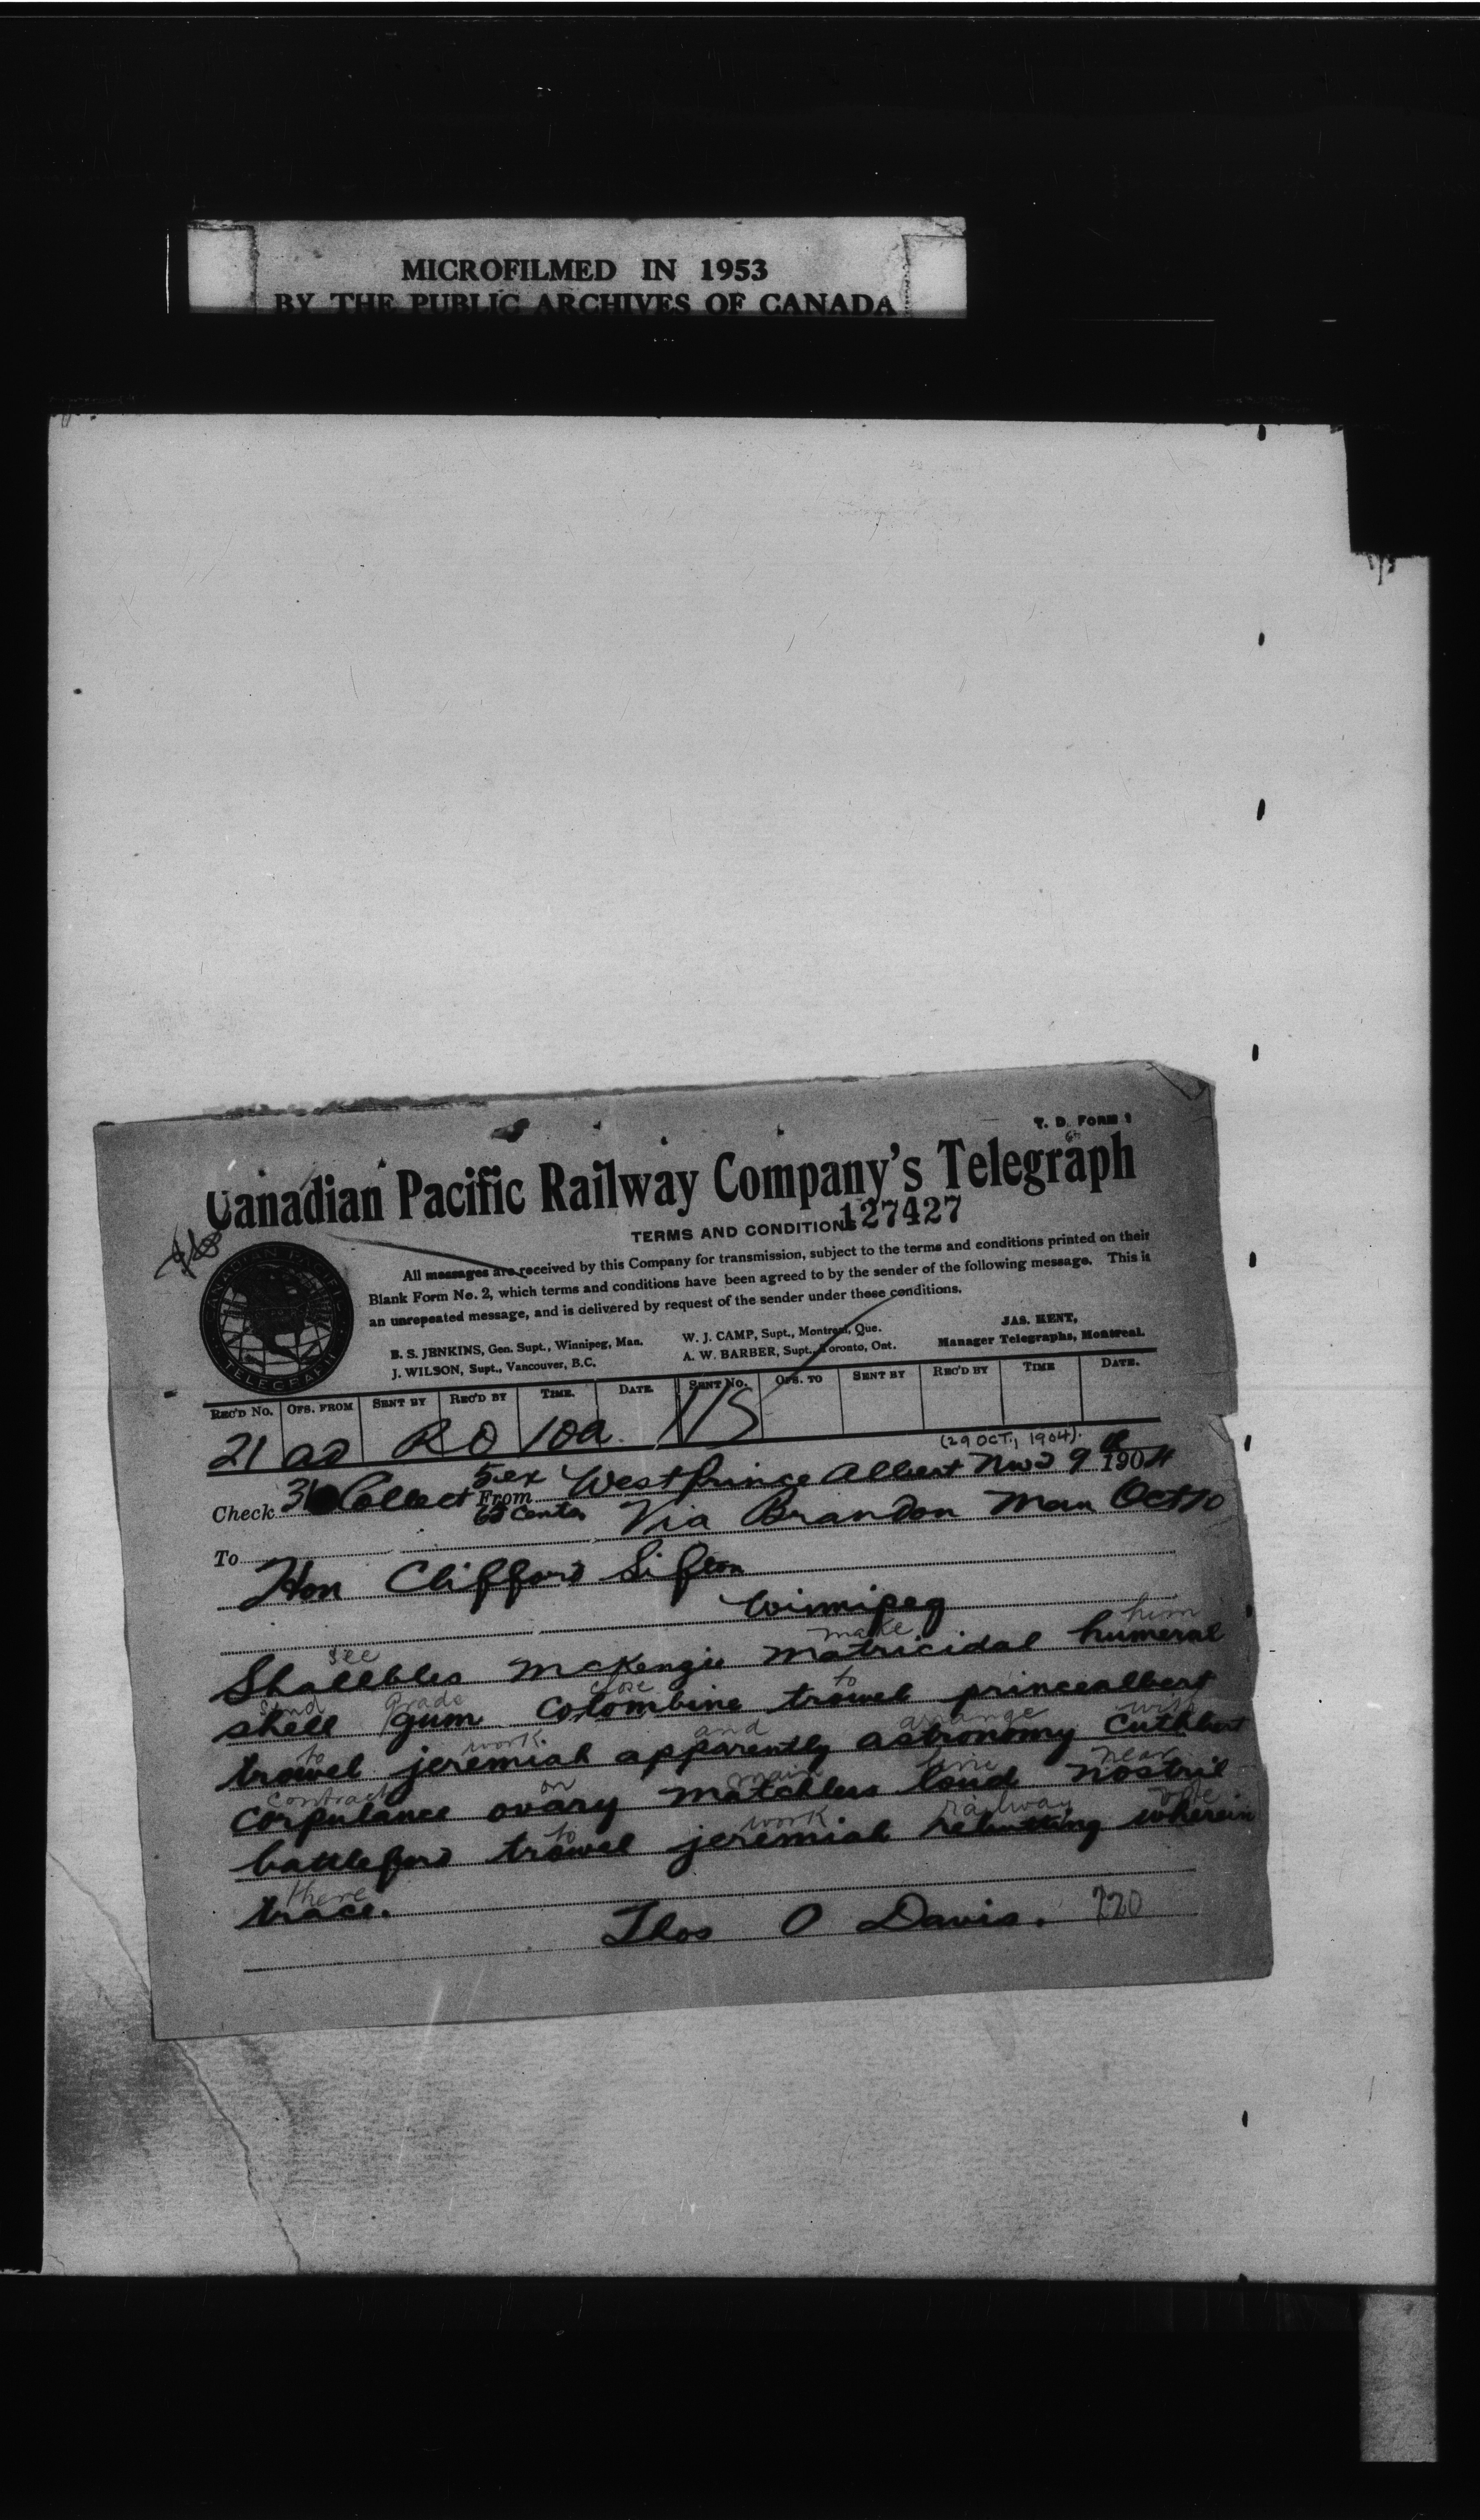 MICROFILMED IN 1953
BY THE PUBLIC ARCHIVES OF CANADA
T. D. FORM 1
Canadian Pacific Railway Company's Telegraph
127427
TERMS AND CONDITIONS
All messages are received by this Company for transmission, subject to the terms and conditions printed on their
Blank Form No. 2, which terms and conditions have been agreed to by the sender of the following message. This is
an unrepeated message, and is delivered by request of the sender under these conditions.
JAS. KENT,
Manager Telegraphs, Montreal.
B. S. JENKINS, Gen. Supt., Winnipeg, Man. W. J. CAMP, Supt., Montreal, Que.
J. WILSON, Supt., Vancouver, B.C. A. W. BARBER, Supt., Toronto, Ont.
CANADIAN PACIFIC TELEGRAPH
REC'D No. OFS. FROM SENT BY REC'D BY TIME. DATE. SENT No. OFS. TO SENT BY REC'D BY TIME DATE.
21 RO 10a. 115
(29 OCT., 1904).
Check Collect From West Prince Albert 9 1904
65 cents Via Brandon Man Oct 10
To
Hon Clifford Sifton
Winnipeg
see make him
McKenzie matricidal humeral
send grade close to
shell gum colombine trowel princealbert
to work. and arrange with
trowel jeremiah apparently astronomy cuthbert
contract on main line near
corpulance ovary matchless loud nostril
to work railway vote
battleford trowel jeremiah rebutting wherein
there
trace.
Thos O Davis. 220